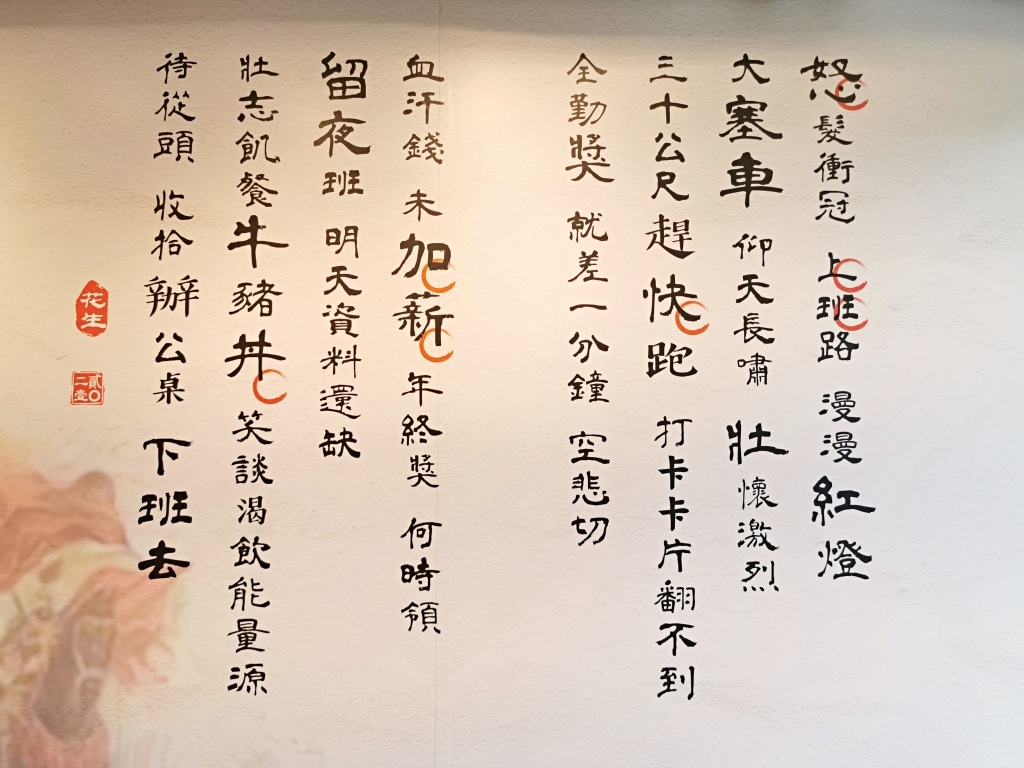 怒髮衝冠 上班路 漫漫紅燈
大塞車 仰天長嘯 壯懷激烈
三十公尺趕快跑 打卡卡片翻不到
全勤獎 就差一分鐘 空悲切
血汗錢 未加薪 年終獎 何時領
留夜班 明天資料還缺
壯志飢餐牛豬丼 笑談渴飲能量源
待從頭 收拾辦公桌 下班去
花生
貳〇二壹